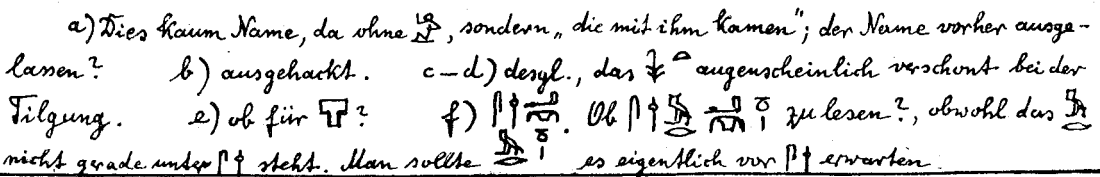 a) Dies kaum Name, da ohne 𓀀, sondern „die mit ihm kamen“; der Name vorher ausge-
lassen? b) ausgehackt. c–d) desgl., das 𓇓𓏏 augenscheinlich verschont bei der
Tilgung. e) ob für ? f) 𓋴. Ob 𓋴 zu lesen?, obwohl das
nicht gerade unter 𓋴 steht. Man sollte es eigentlich vor 𓋴 erwarten